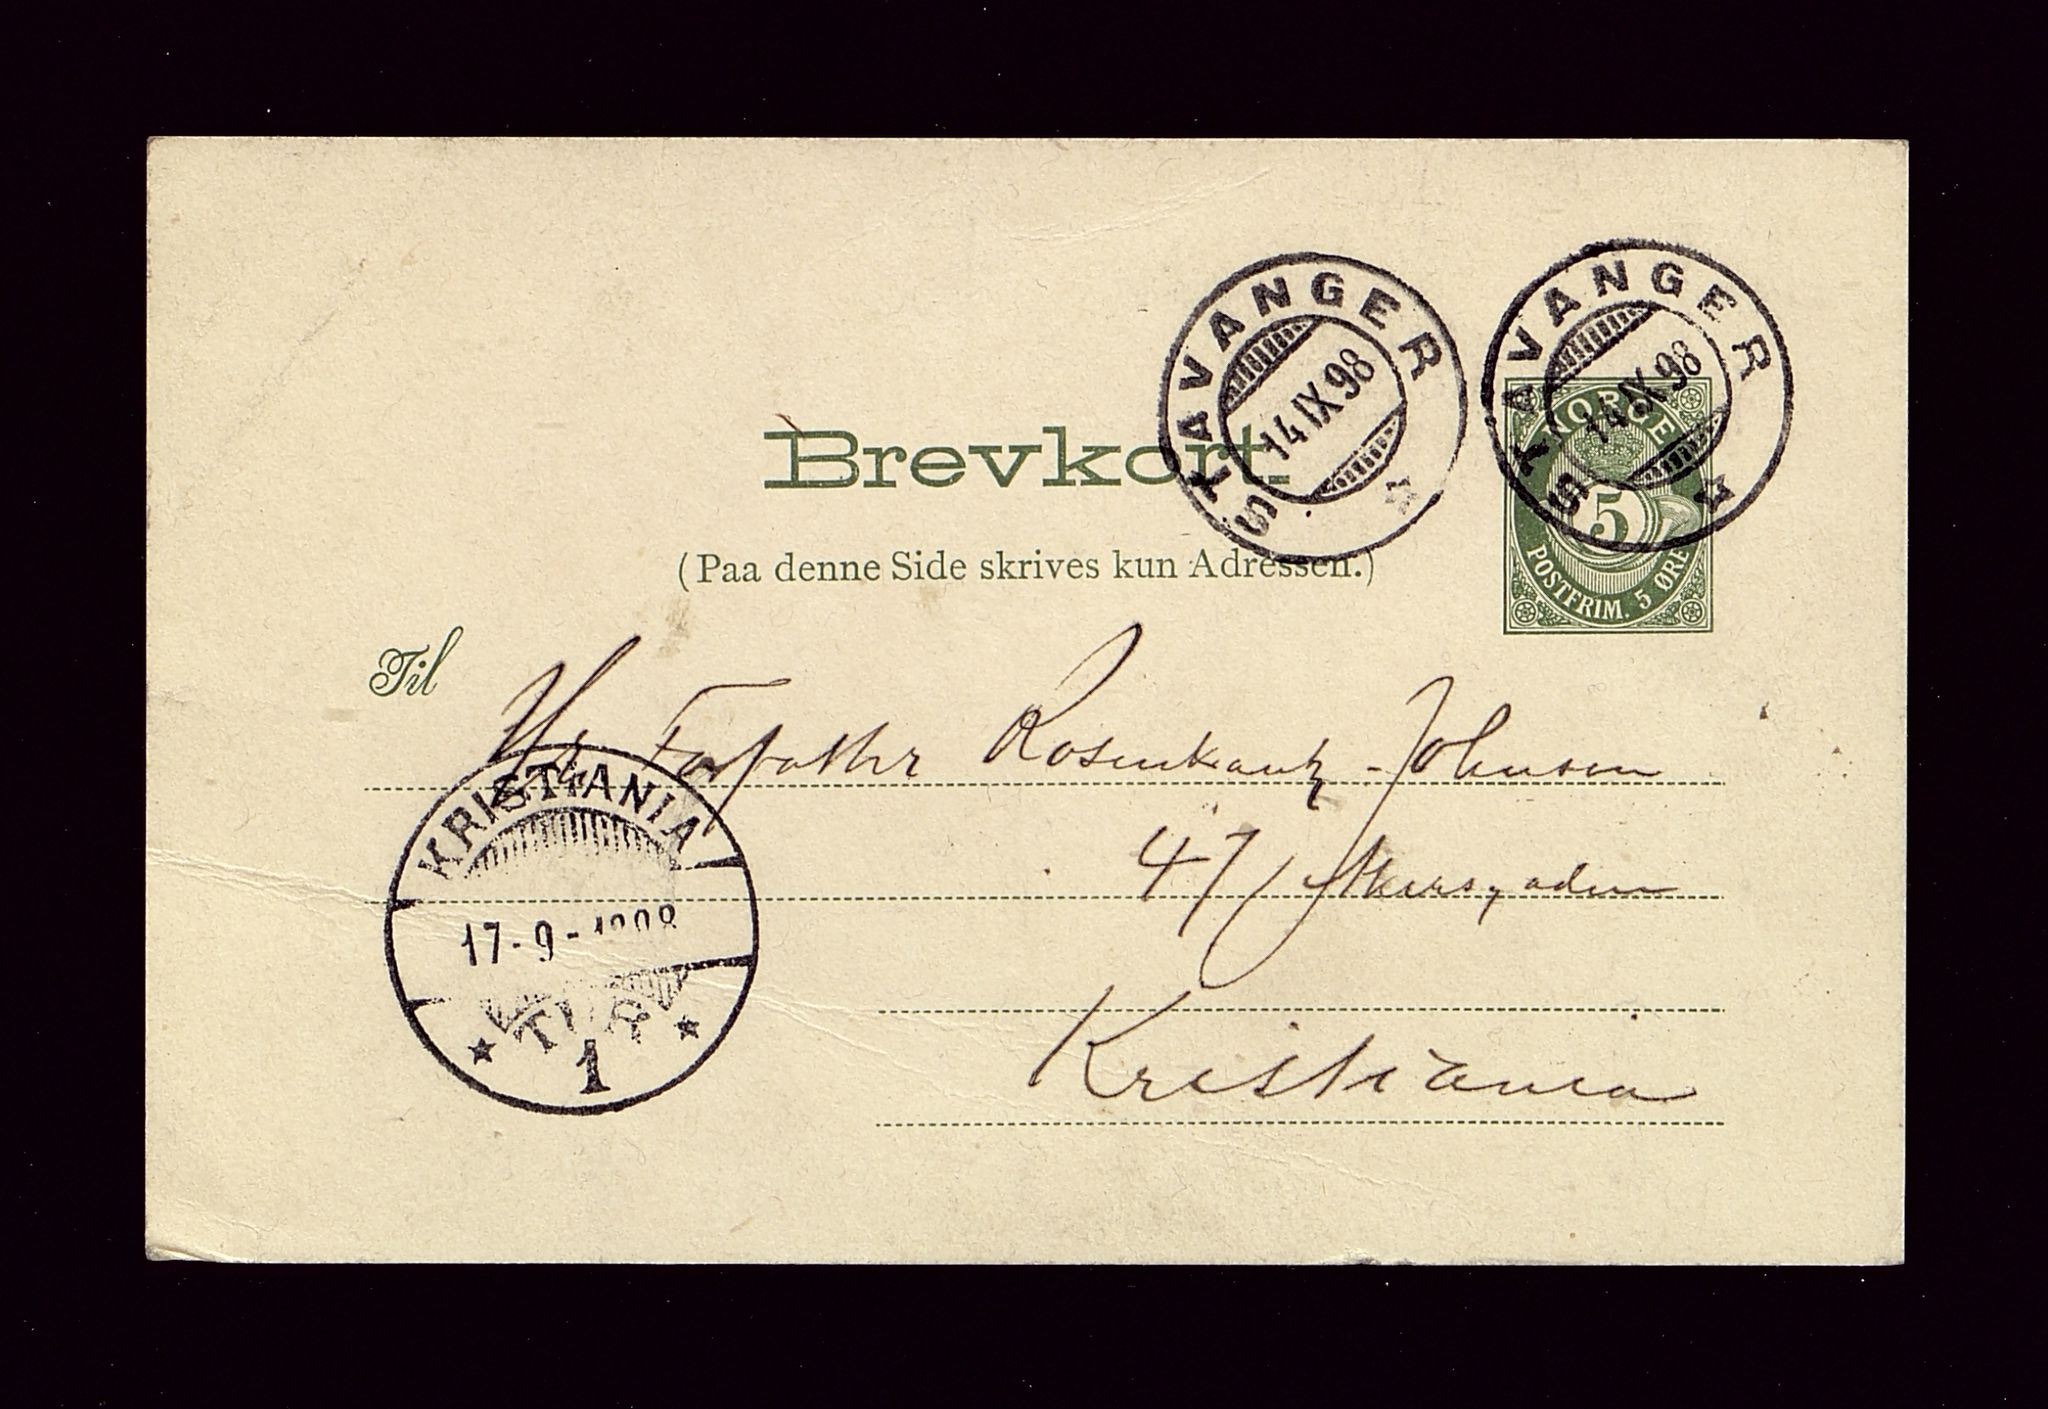 STAVANGER
14 IX 98
STAVANGER
14 IX 98
NORGE
5
POSTFRIM. 5 ØRE
Brevkort.
(Paa denne Side skrives kun Adressen.)
Til
Hr. Forfatter Rosenkrantz-Johnsen
47 Akersgaden
Kristiania
KRISTIANIA
17-9-1898
1